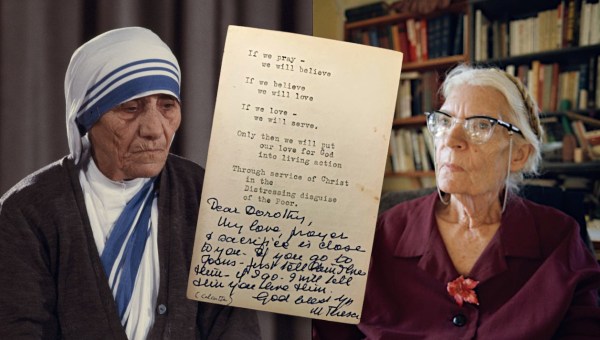 If we pray -
we will believe
If we believe
we will love
If we love -
we will serve.
Only then we will put
our love for God
into living action
Through service of Christ
in the
Distressing disguise
of the Poor.
Dear Dorothy,
My love, prayer
& sacrifice is close
to you - If you go to
Jesus - first tell Him I love
Him - If I go - I will tell
Him you love Him.
God bless you
M Teresa